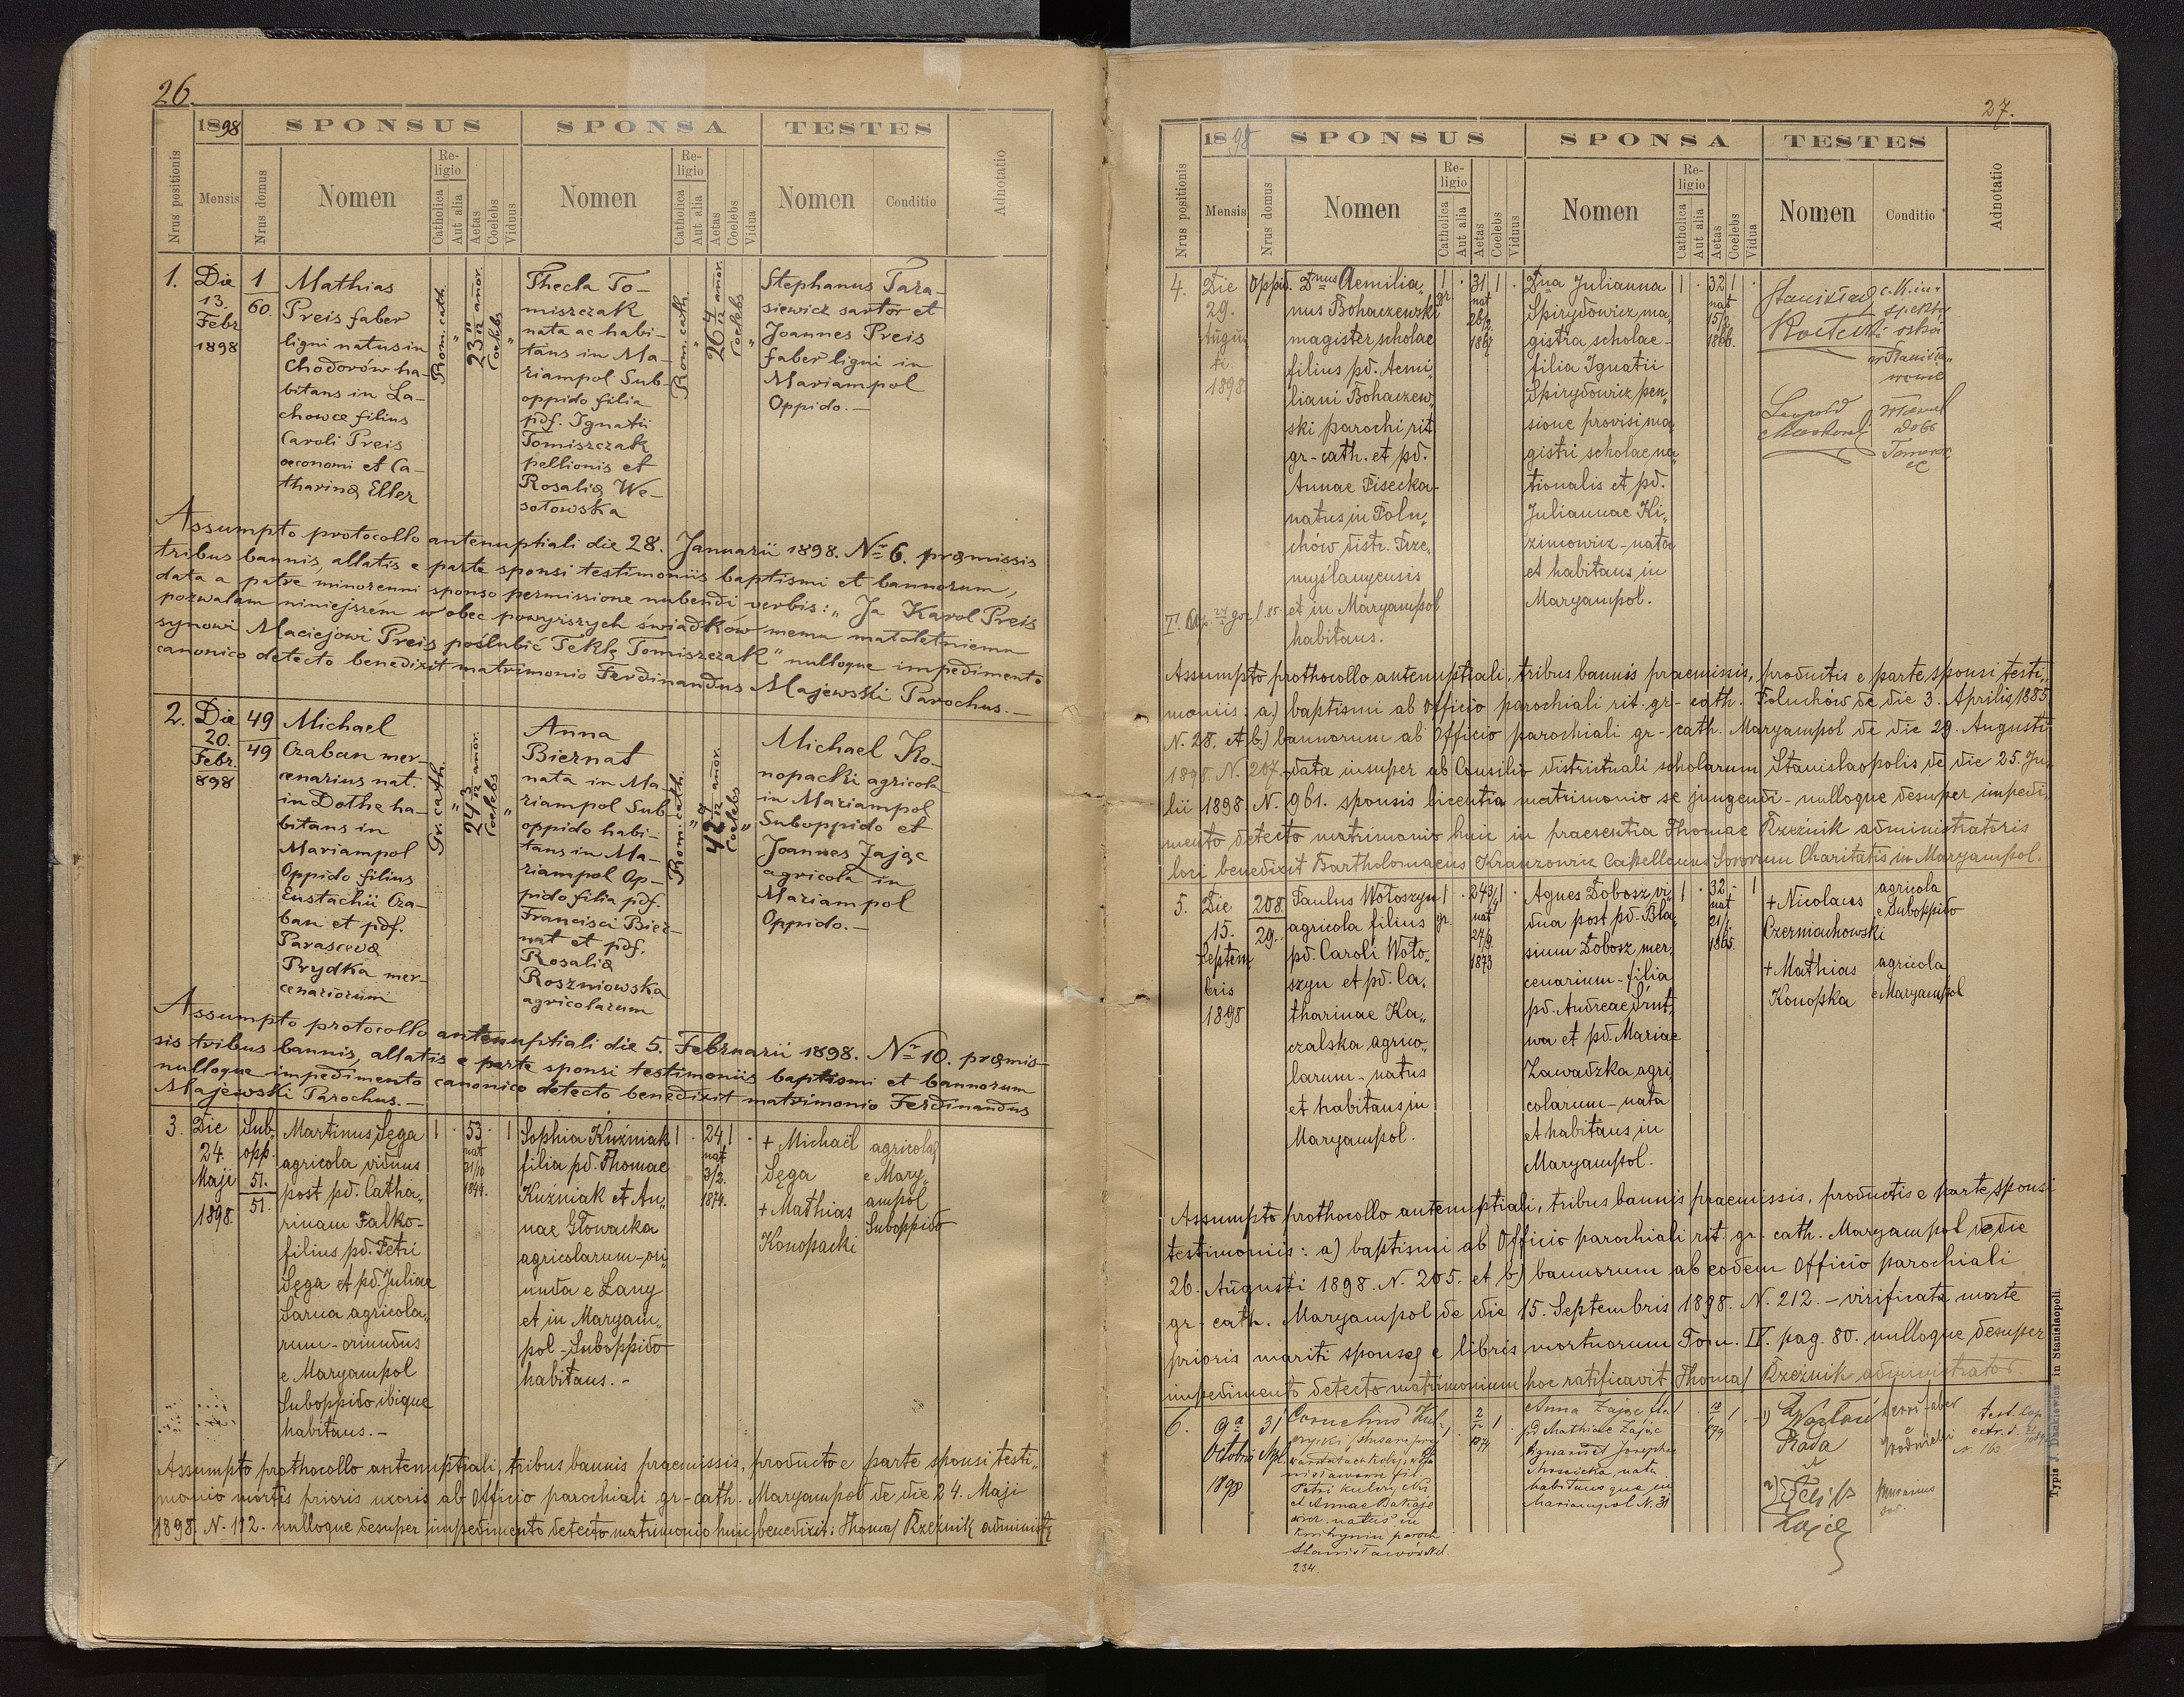 26.
1898
SPONSUS
SPONSA
TESTES
Nrus positionis
Mensis
Nrus domus
Nomen
Religio
Catholica
Aut alia
Aetas
Coelebs
Viduus
Nomen
Religio
Catholica
Aut alia
Aetas
Coelebs
Vidua
Nomen
Conditio
Adnotatio
1.
Die
13.
Febr
1898
1
60.
Mathias
Preis faber
ligni natus in
Chodorów ha-
bitans in La-
chowce filius
Caroli Preis
oeconomi et Ca-
tharinæ Eller
Rom. cath.
"
23 11/12 añor.
Coelebs
"
Thecla To-
miszczak
nata ac habi-
tans in Ma-
riampol Sub-
oppido filia
pdf. Ignatii
Tomiszczak
pellionis et
Rosaliæ We-
sołowska
Rom. cath.
"
26 4/12 añor.
Coelebs
"
Stephanus Tara-
siewicz sartor et
Joannes Preis
faber ligni in
Mariampol
Oppido.-
Assumpto protocollo antenuptiali die 28. Januarii 1898. Nr 6. præmissis
tribus bannis, allatis e parte sponsi testimoniis baptismi et bannorum,
data a patre minorenni sponso permissione nubendi verbis: "Ja Karol Preis
pozwalam niniejszém w obec powyższych świadków memu małoletniemu
synowi Maciejowi Preis poślubić Teklę Tomiszczak" nulloque impedimento
canonico detecto benedixit matrimonio Ferdinandus Majewski Parochus.-
2.
Die
20.
Febr.
898
49
49
Michael
Czaban mer-
cenarius nat.
in Dothe ha-
bitans in
Mariampol
Oppido filius
Eustachii Cza-
ban et pdf.
Parascevæ
Prydka mer-
cenariorum
Gr. cath.
"
24 3/12 añor.
Coelebs
"
Anna
Biernat
nata in Ma-
riampol Sub-
oppido habi-
tans in Ma-
riampol Op-
pido filia pdf.
Francisci Bier-
nat et pdf.
Rosaliæ
Roszniowska
agricolarum
Rom. cath.
"
42 7/12 añor.
Coelebs
"
Michael Ko-
nopacki agricola
in Mariampol
Suboppido et
Joannes Zając
agricola in
Mariampol
Oppido.-
Assumpto protocollo antenuptiali die 5. Februarii 1898. Nr 10. præmis-
sis tribus bannis, allatis e parte sponsi testimoniis baptismi et bannorum
nulloque impedimento canonico detecto benedixit matrimonio Ferdinandus
Majewski Parochus.-
3.
Die
24.
Maji
1898.
Sub-
opp.
51.
51.
Martinus Sęga
agricola viduus
post pd. Catha„
rinam Falko-
filius pd. Petri
Sęga et pd. Juliae
Sarna agricola„
rum-oriundus
e Maryampol
Suboppido ibique
habitans.-
1 · 53 · 1
nat
31/10
1844.
Sophia Kuźniak
filia pd. Thomae
Kuźniak et An„
nae Głowacka
agricolarum-ori„
unda e Łany
et in Maryam„
pol-Suboppido
habitans.-
1 · 24 1 ·
nat
3/2.
1874.
+ Michaël
Sęga
+ Mathias
Konopacki
agricolæ
e Mary„
ampol
Suboppido
Assumpto prothocollo antenuptiali, tribus bannis praemissis, producto e parte sponsi testi„
monio mortis prioris uxoris ab Officio parochiali gr-cath. Maryampol de die 24. Maji
1898. N. 112. nulloque desuper impedimento detecto matrimonio huic benedixit: Thomas Rzeźnik administr
27.
1898
SPONSUS
SPONSA
TESTES
Nrus positionis
Mensis
Nrus domus
Nomen
Religio
Catholica
Aut alia
Aetas
Coelebs
Viduus
Nomen
Religio
Catholica
Aut alia
Aetas
Coelebs
Vidua
Nomen
Conditio
Adnotatio
4.
Die
29.
Augus
ti.
1898
Oppid.
Dnus Aemilia„
nus Bohaczewski
magister scholae
filius pd. Aemi„
liani Bohaczew„
ski parochi rit
gr-cath. et pd.
Annae Pisecka-
natus in Polu„
chów distr. Prze„
myślanyensis
et in Maryampol
habitans.
1 · 31 1 ·
gr. nat
26/2
1867
Dna Julianna
Spirydowicz ma„
gistra scholae-
filia Ignatii
Spirydowicz pen„
sione provisi ma„
gistri scholae na„
tionalis et pd.
Juliannae Ki„
zimowicz-nata
et habitans in
Maryampol.
1 · 32 1 ·
nat
15/2
1866.
Stanisław
c. K. in-
spektor
w Stanisła„
wowie
Leopold
Assumpto prothocollo antenuptiali, tribus bannis praemissis, productis e parte sponsi testi„
moniis: a.) baptismi ab Officio parochiali rit. gr-cath. Poluchów de die 3. Aprilis 1885
N. 28. et b.) bannorum ab Officio parochiali gr-cath. Maryampol de die 29. Augusti
1898. N. 207.-data insuper ab Consilio districtuali scholarum Stanislaopolis de die 25. Ju„
lii 1898 N. 961. sponsis licentia matrimonio se jungendi-nulloque desuper impedi„
mento detecto matrimonio huic in praesentia Thomae Rzeźnik administratoris
loci benedixit Bartholomaeus Kranzowicz Capellanus Sororum Charitatis in Maryampol.
5.
Die
15.
Septem
bris
1898
208.
29.
Paulus Wołoszyn
agricola filius
pd. Caroli Woło„
szyn et pd. Ca„
tharinae Ka„
czalska agrico„
larum-natus
et habitans in
Maryampol.
1 · 24 3/4 1 ·
gr. nat
27/9
1873
Agnes Dobosz vi„
dua post pd. Bla„
sium Dobosz mer„
cenarium-filia
pd. Andreae Śrut„
wa et pd. Mariae
Zawadzka agri„
colarum-nata
et habitans in
Maryampol.
1 · 32 - 1
nat
21/1
1865.
+ Nicolaus
Czerniachowski
+ Mathias
Konopka
agricola
e Suboppido
agricola
e Maryampol
Assumpto prothocollo antenuptiali, tribus bannis praemissis, productis e parte sponsi
testimoniis: a) baptismi ab Officio parochiali rit. gr-cath. Maryampol de die
26. Augusti 1898. N. 205. et b) bannorum ab eodem Officio parochiali
gr-cath. Maryampol de die 15. Septembris 1898. N. 212.-vivificata morte
prioris mariti sponsæ e libris mortuorum Tom. IV. pag. 80. nulloque desuper
impedimento detecto matrimonium hoc ratificavit Thomas Rzeźnik administrator.
6.
9a
Octobris
1898
31
Mpl.
Cornelius Kul-
Petri
et Annae
natus in
Knihynin paroch
Stanisławów Nd
234.
1874
Anna Zając fil.
pd Mathiae Zając
et Josepha
nata
habitansque in
Mariampol N. 31
1)
Prada
et
2) Filip
Zając
ferri faber
N. 163
Typis J. Dankiewicz in Stanislaopoli.